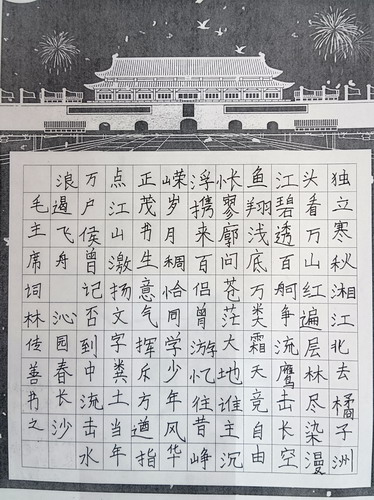 独立寒秋湘江北去橘子洲
头看万山红遍层林尽染漫
江碧透百舸争流鹰击长空
鱼翔浅底万类霜天竞自由
怅寥廓问苍茫大地谁主沉
浮携来百侣曾游忆往昔峥
嵘岁月稠恰同学少年风华
正茂书生意气挥斥方遒指
点江山激扬文字粪土当年
万户侯曾记否到中流击水
浪遏飞舟 沁园春长沙
毛主席词林传善书之